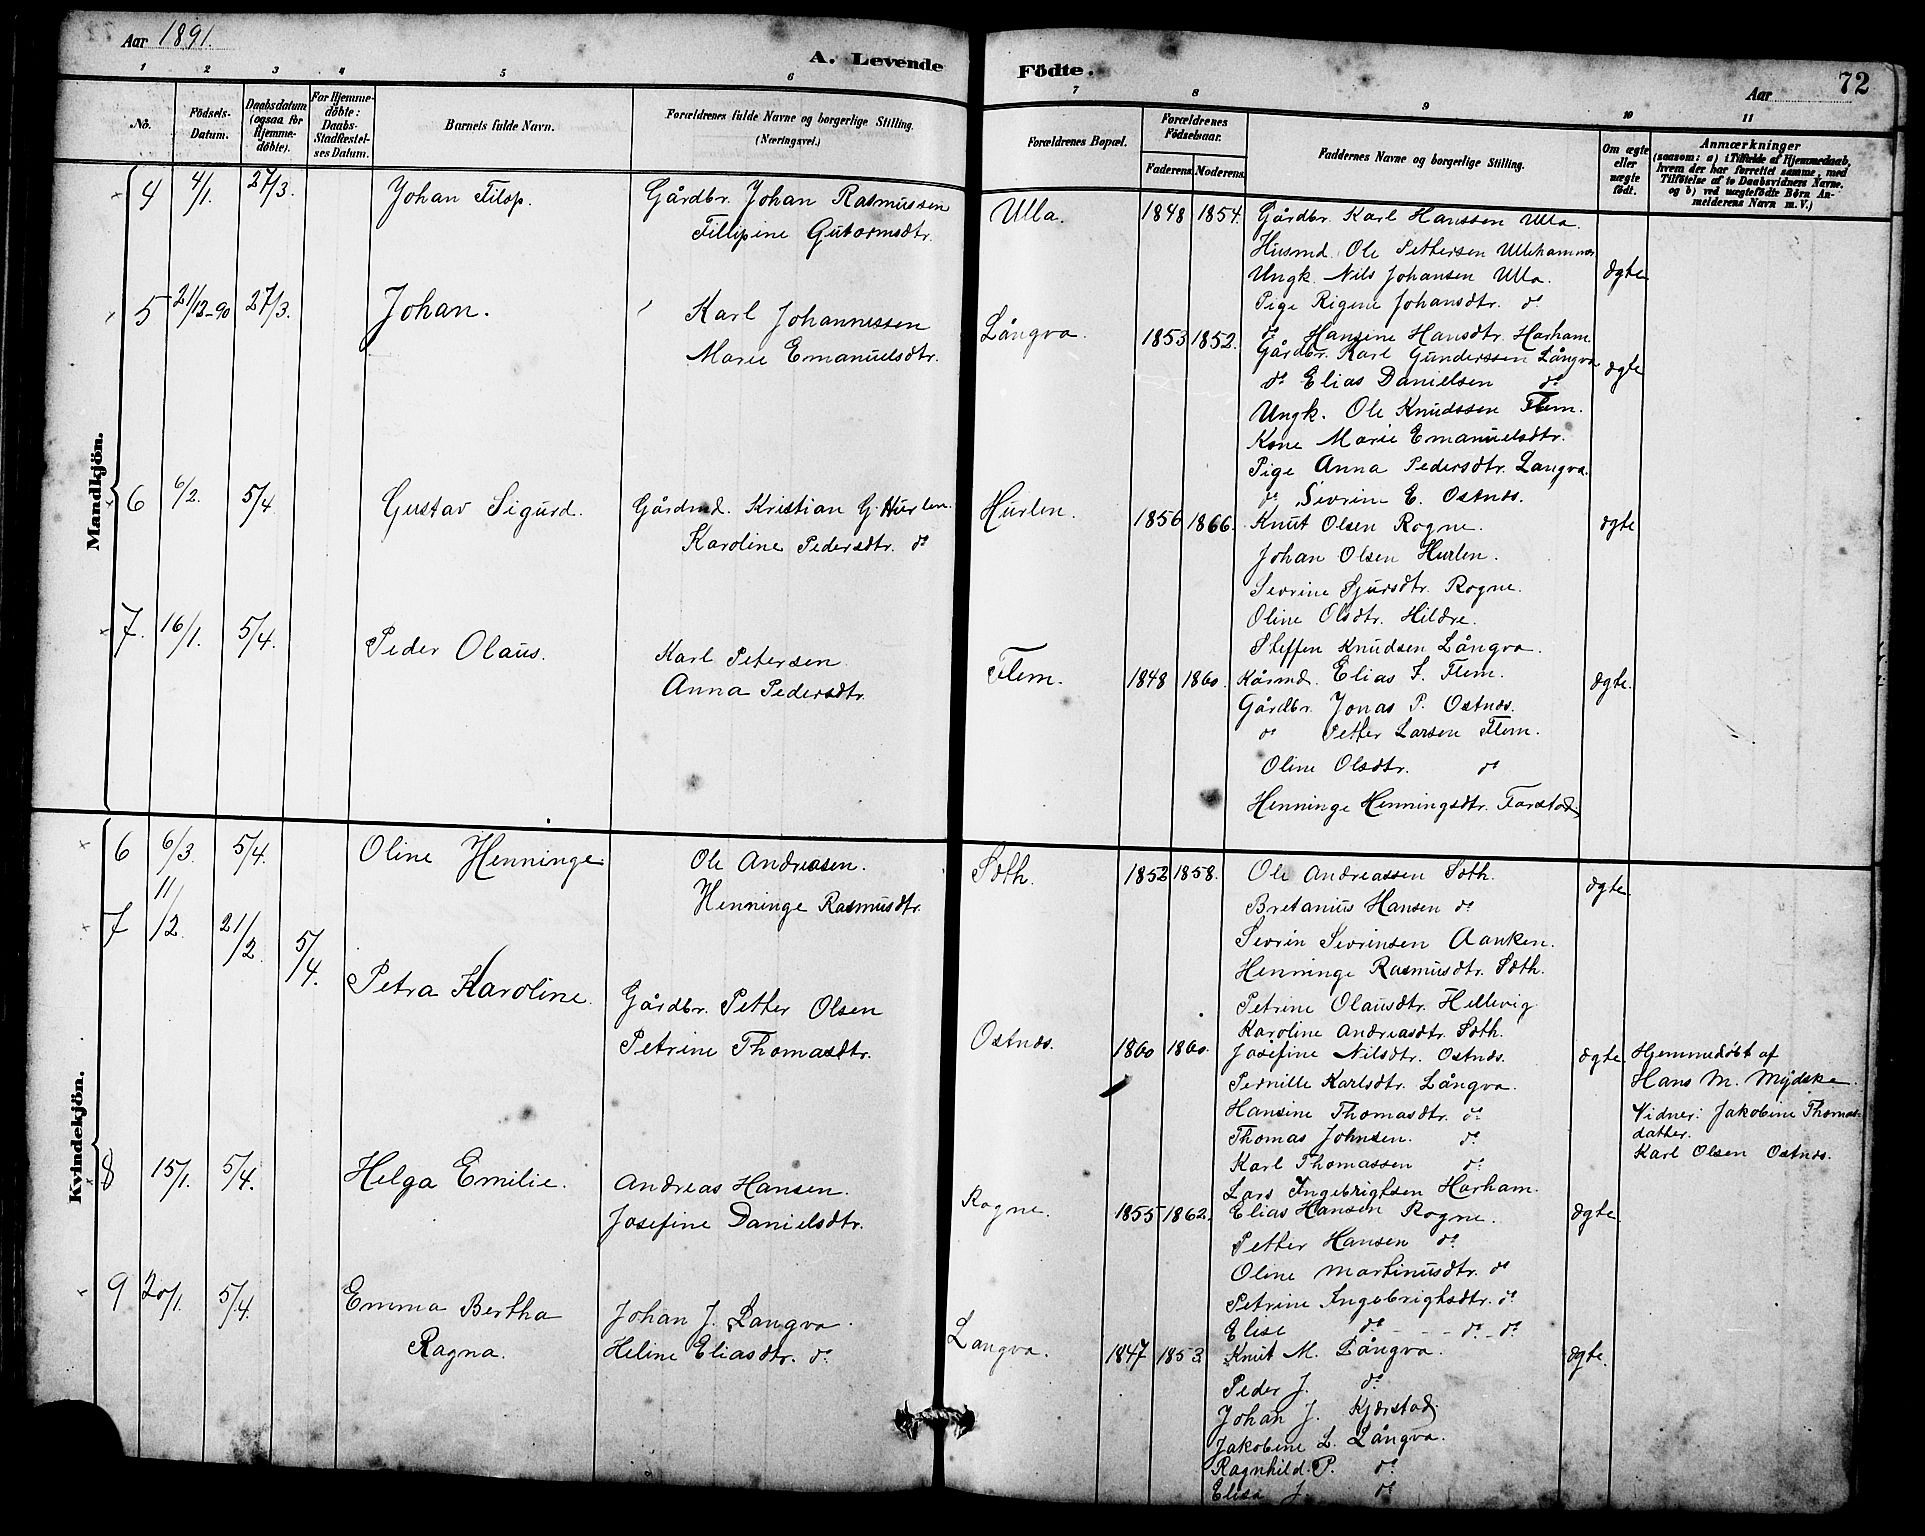 Aar 1891.
A. Levende Födte.
Aar 72
1 2 3 4 5 6 7 8 9 10 11
No.
Födsels-Datum.
Daabsdatum (ogsaa for Hjemme-döbte).
For Hjemme-döbte: Daabs-Stadfæstel-ses Datum.
Barnets fulde Navn.
Forældrenes fulde Navne og borgerlige Stilling.
(Næringsvei.)
Forældrenes Bopæl.
Forældrenes Födselsaar.
Faderens. Moderens.
Faddernes Navne og borgerlige Stilling.
Om ægte eller uægte födt.
Anmærkninger
(saasom: a) i Tilfælde af Hjemmedaab, hvem der har forrettet samme, med Tilföielse af to Daabsvidners Navne. og b) ved uægtefödte Börn An-melderens Navn m. V.)
Mandkjön.
4 4/1. 27/3. Johan Filop. Gårdbr. Johan Rasmussen Ulla. 1848 1854. Gårdbr. Karl Hanssen Ulla.
Fillipine Gutormsdtr. Husmd. Ole Pettersen Ullahamnen
Ungk. Nils Johansen Ulla. ægte
Pige Rigene Johansdtr. do
do Hansine Hansdtr. Harham.
5 21/12-90 27/3. Johan. Karl Johannessen Långva. 1853 1852. Gårdbr. Karl Gunderssen Långva
Marie Emanuelsdtr. do Elias Danielsen do ægte
Ungk. Ole Knudssen Flem.
Kone Marie Emanuelsdtr.
Pige Anna Pedersdtr. Langva.
do Sivrine E. Ostnæs.
6 6/2. 5/4 Gustav Sigurd. Gårdmd. Kristian G. Hurlen. Hurlen. 1856 1866. Knut Olsen Rogne. ægte
Karoline Pedersdtr. do Johan Olsen Hurlen.
Sevrine Sjursdtr. Rogne.
Oline Olsdtr. Hildre.
Steffen Knudsen Långva.
7. 16/1. 5/4. Peder Olaus. Karl Petersen. Flem. 1848 1860. Kårmd. Elias F. Flem. ægte.
Anna Pedersdtr. Gårdbr. Jonas P. Ostnæs.
do Petter Larsen Flem.
Oline Olsdtr. do
Henninge Henningsdtr. Farstad
Kvindekjön.
6 6/3. 5/4. Oline Henninge Ole Andreasen. Sæth. 1852 1858. Ole Andreassen Sæth. ægte.
Henninge Rasmusdtr. Bretanius Hansen do
Sevrin Sevrinsen Aanken.
Henninge Rasmusdtr. Sæth.
Petrine Olausdtr. Hellevig
Karoline Andreasdtr. Sæth.
7 11/2. 21/2. 5/4. Petra Karoline. Gårdbr. Petter Olsen Ostnæs. 1860 1860. Josefine Nilsdtr. Ostnæs. ægte. Hjemmedøbt af
Petrine Thomasdtr. Pernille Karlsdtr. Långva. Hans M. Mydske.
Hansine Thomasdtr. do Vidner: Jakobine Thomas-
Thomas Johnsen. do datter.
Karl Thomassen do Karl Olsen Ostnæs.
Lars Ingebrigtsen Harham.
8 15/1. 5/4. Helga Emilie. Andreas Hansen. Rogne. 1855 1862. Elias Hansen Rogne. ægte.
Josefine Danielsdtr. Petter Hansen do
Oline Martinusdtr. do
Petrine Ingebrigtsdtr. do
Elise do - - - do - do
9 20/1. 5/4. Emma Bertha Johan J. Langva. Langva. 1847 1853. Knut M. Långva. ægte.
Ragna. Heline Eliasdtr. do Peder J. do
Johan J. Kjærstad.
Jakobine L. Långva.
Ragnhild P. do
Elisa J. do